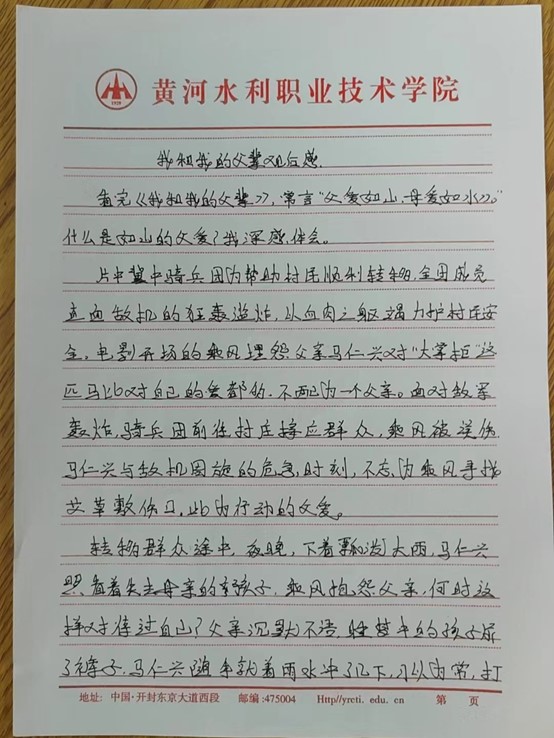 黄河水利职业技术学院
我和我的父辈观后感
看完《我和我的父辈》，常言"父爱如山，母爱如水"。
什么是如山的父爱？我深感体会。
片中冀中骑兵团为帮助村民顺利转移，全团成员
直面敌机的狂轰滥炸，以血肉之躯竭力护村民安
全，电影开场的乘风埋怨父亲马仁兴对"大掌柜"这
匹马比对自己的爱都多，不配为一个父亲。面对敌军
轰炸，骑兵团前往村庄接应群众，乘风被误伤
马仁兴与敌机周旋的危急时刻，不忘为乘风寻找
艾草敷伤口，此为行动的父爱。
转移群众途中，夜晚，下着瓢泼大雨，马仁兴
照看着失去母亲的孩子，乘风抱怨父亲，何时这
样对待过自己？父亲沉默不语，睡梦中的孩子尿
了裤子，马仁兴随手就着雨水冲了几下，习以为常，打
地址: 中国·开封东京大道西段 邮编:475004 Http//yrcti. edu. cn 第 页